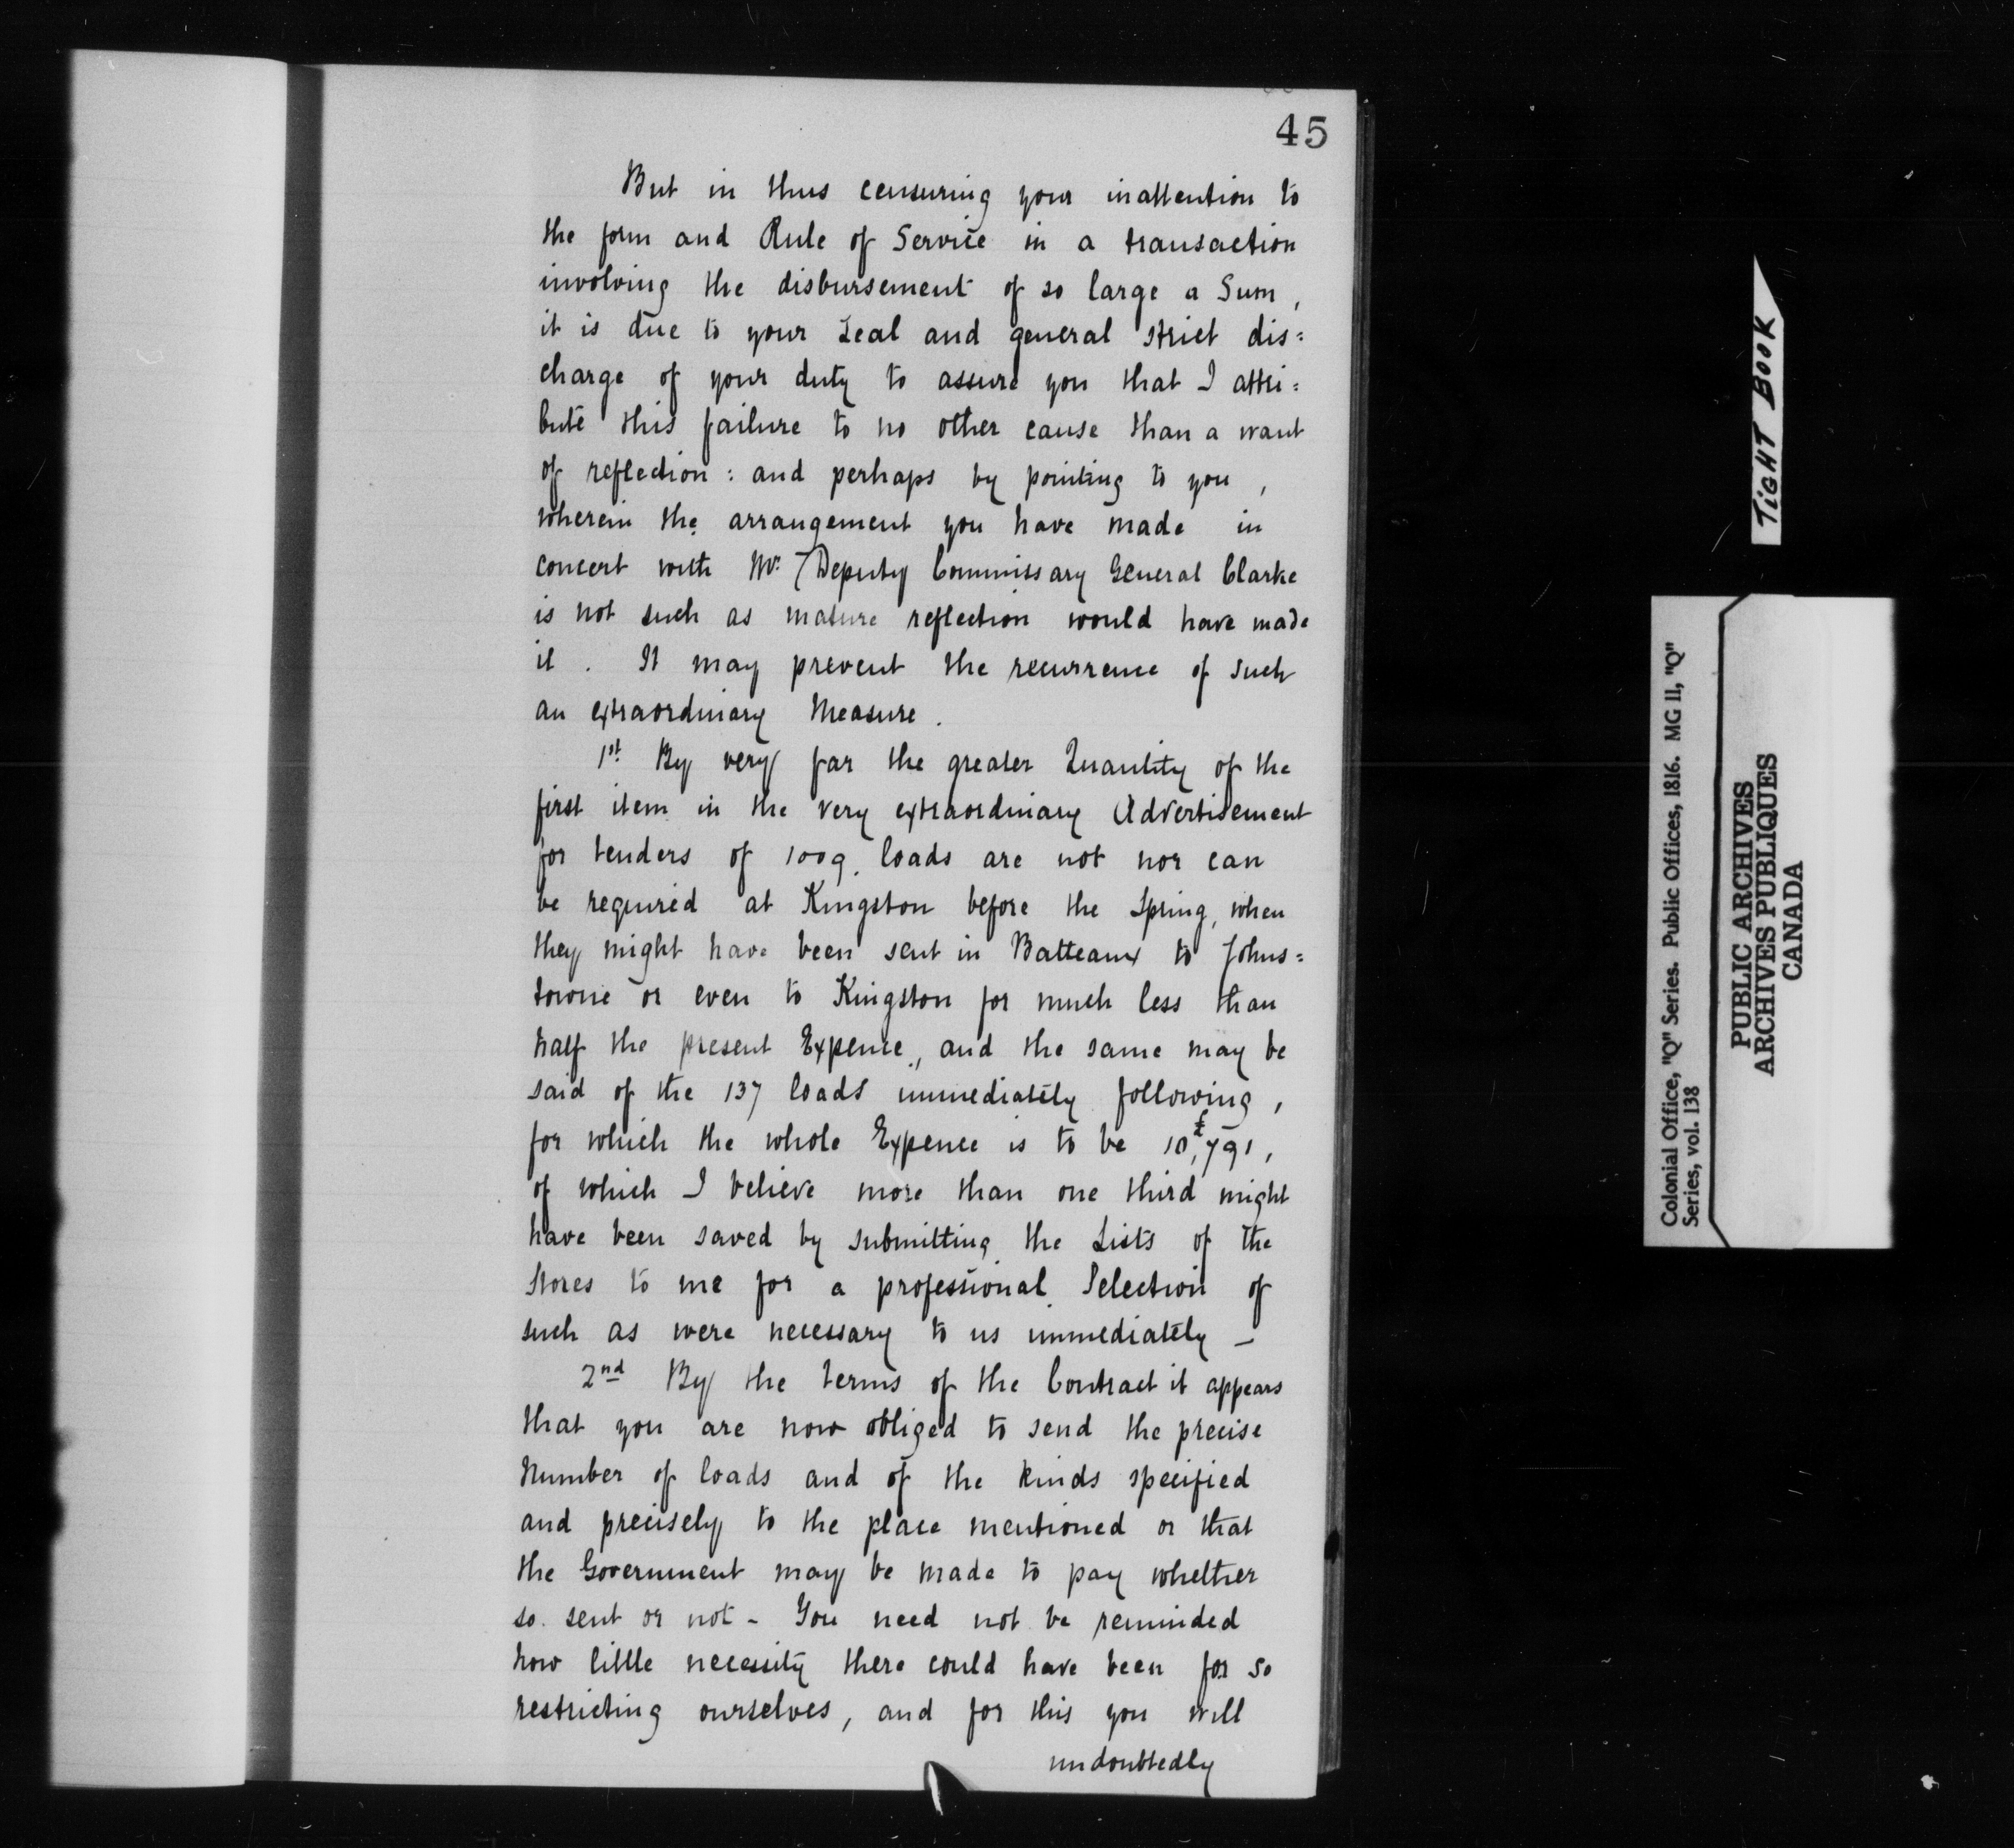 45
But in thus censuring your inattention to
the form and Rule of Service in a transaction
involving the disbursement of so large a Sum,
it is due to your Zeal and general strict dis=
charge of your duty to assure you that I attri=
bute this failure to no other cause than a want
of reflection: and perhaps by pointing to you,
wherein the arrangement you have made in
concert with Mr. Deputy Commissary General Clarke
is not such as mature reflection would have made
it. It may prevent the recurrence of such
an extraordinary measure.
1st By very far the greater Quantity of the
first item in the very extraordinary Advertisement
for tenders of 1009. loads are not nor can
be required at Kingston before the Spring, when
they might have been sent in Batteaux to Johns=
towne or even to Kingston for much less than
half the present Expence, and the same may be
said of the 137 loads immediately following,
for which the whole Expence is to be 10,£791,
of which I believe more than one third might
have been saved by submitting the Lists of the
Stores to me for a professional Selection of
such as were necessary to us immediately —
2nd By the terms of the Contract it appears
that you are now obliged to send the precise
Number of loads and of the kinds specified
and precisely to the place mentioned or that
the Government may be made to pay whether
so sent or not - You need not be reminded
how little necessity there could have been for so
restricting ourselves, and for this you will
undoubtedly
TiGHT BOOK
Colonial Office, "Q" Series. Public Offices, 1816. MG 11, "Q"
Series, vol. 138
PUBLIC ARCHIVES
ARCHIVES PUBLIQUES
CANADA